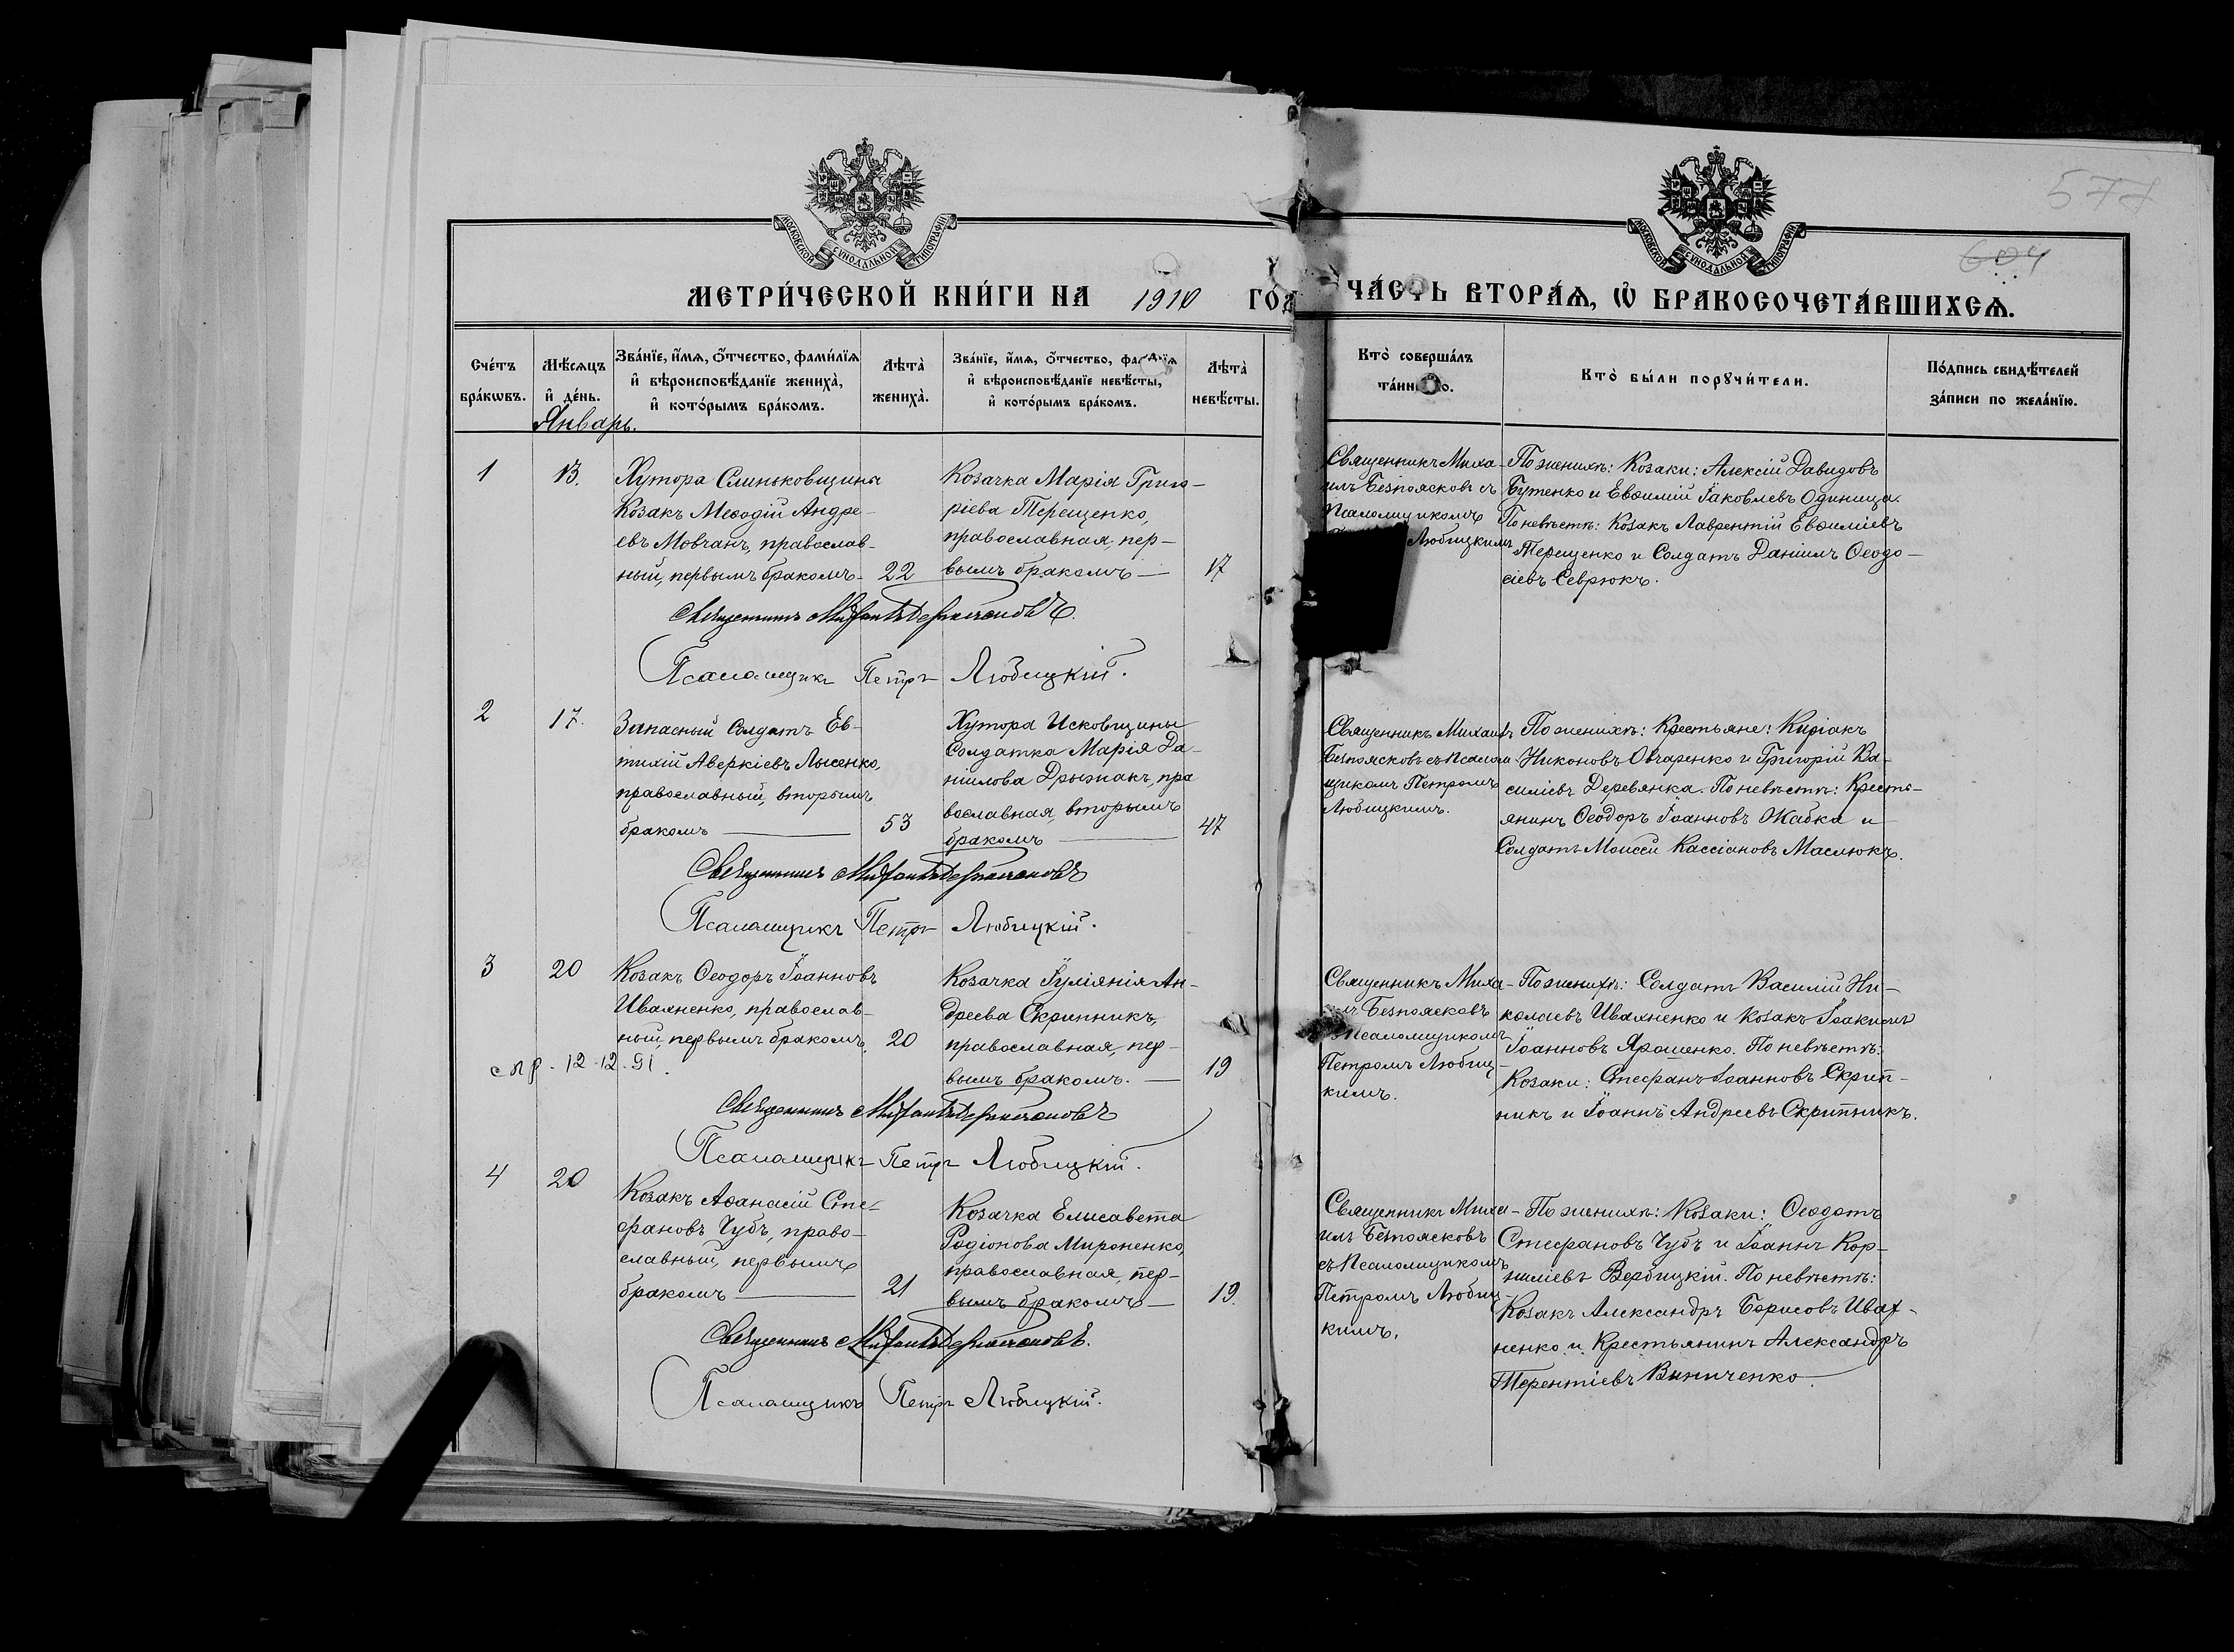 577
604
МОСКОВСКОЙ СУНОДАЛЬНОЙ ТИПОГРАФІИ
МОСКОВСКОЙ СУНОДАЛЬНОЙ ТИПОГРАФІИ
МЕТРИ́ЧЕСКОЙ КНИ́ГИ НА 1910 ГОД
ЧА́СТЬ ВТОРА́Ѧ, Ѽ БРАКОСОЧЕТА́ВШИХСѦ.
Сче́тъ бра́кѡвъ.
Мѣ́сѧцъ и҆ де́нь.
Зва́нїе, и҆́мѧ, ѻ҆́тчество, фами́лїѧ и҆ вѣроисповѣ́данїе жениха̀, и҆ кото́рымъ бра́комъ.
Лѣта̀ жениха̀.
Зва́нїе, и҆́мѧ, ѻ҆́тчество, фа и҆ вѣроисповѣ́данїе невѣ́сты, и҆ кото́рымъ бра́комъ.
Лѣта̀ невѣ́сты.
Кто̀ соверша́лъ
Кто̀ бы́ли порꙋчи́тели.
По́дпись свидѣ́телей за́писи по жела́нїю.
Январь.
1
13.
Хутора Слиньковщины
Козакъ Меѳодій Андре-
евъ Мовчанъ, православ-
ный, первымъ бракомъ-
22
Козачка Марія Григо-
ріева Терещенко,
православная, пер-
вымъ бракомъ
17
Священникъ Миха-
илъ Безпоясковъ съ
Псаломщикомъ
Любицкимъ
По женихѣ: Козаки: Алексій Давидовъ
Бутенко и Евѳимій Іаковлевъ Одиница.
По невѣстѣ: Козакъ Лаврентій Евѳиміевъ
Терещенко и Солдатъ Даніилъ Ѳеодо-
сіевъ Севрюкъ.
Священникъ Михаилъ Безпоясковъ.
Псаломщикъ Петръ Любицкій.
2
17.
Запасный Солдатъ Ев-
тихій Аверкіевъ Лысенко,
православный, вторымъ
бракомъ
53
Хутора Исковщины
Солдатка Марія Да-
ніилова Дрыжакъ, пра
вославная, вторымъ
бракомъ
47
Священникъ Михаилъ
Безпоясковъ съ Псалом
щикомъ Петромъ
Любицкимъ.
По женихѣ: Крестьяне: Киріакъ
Никоновъ Овчаренко и Григорій Ва-
силіевъ Деревянка. По невѣстѣ: Кресть-
янинъ Ѳеодоръ Іоанновъ Жабка и
Солдатъ Моисей Кассіановъ Маслюкъ.
Священникъ Михаилъ Безпоясковъ
Псаломщикъ Петръ Любицкій.
3
20
Козакъ Ѳеодоръ Іоанновъ
Иваxненко, православ-
ный, первымъ бракомъ.
20
Козачка Іуліянія Ан-
дреева Скрипникъ,
православная, пер-
вымъ бракомъ.
19
12-12-91.
Священникъ Миха-
Безпоясковъ
Псаломщикомъ
Петромъ Любиц-
кимъ.
По женихѣ: Солдатъ Василій Ни-
колаевъ Ивахненко и Козакъ Іоакимъ
Іоанновъ Ярошенко. По невѣстѣ:
Козаки: Стефанъ Іоанновъ Скрип-
никъ и Іоаннъ Андреевъ Скрипникъ.
Священникъ Михаилъ Безпоясковъ
Псаломщикъ Петръ Любицкій.
4
20
Козакъ Аѳанасій Сте-
фановъ Чубъ, право-
славный, первымъ
бракомъ
21
Козачка Елисавета
Родіонова Мироненко,
православная, пер-
вымъ бракомъ
19.
Священникъ Миха-
илъ Безпоясковъ
съ Псаломщикомъ
Петромъ Любиц-
кимъ.
По женихѣ: Козаки: Ѳеодотъ
Стефановъ Чубъ и Іоаннъ Кор-
ниліевъ Вербицкій. По невѣстѣ:
Козакъ Александръ Борисовъ Ивах-
ненко и Крестьянинъ Александръ
Терентіевъ Винниченко.
Священникъ Михаилъ Безпоясковъ.
Псаломщикъ Петръ Любицкій.